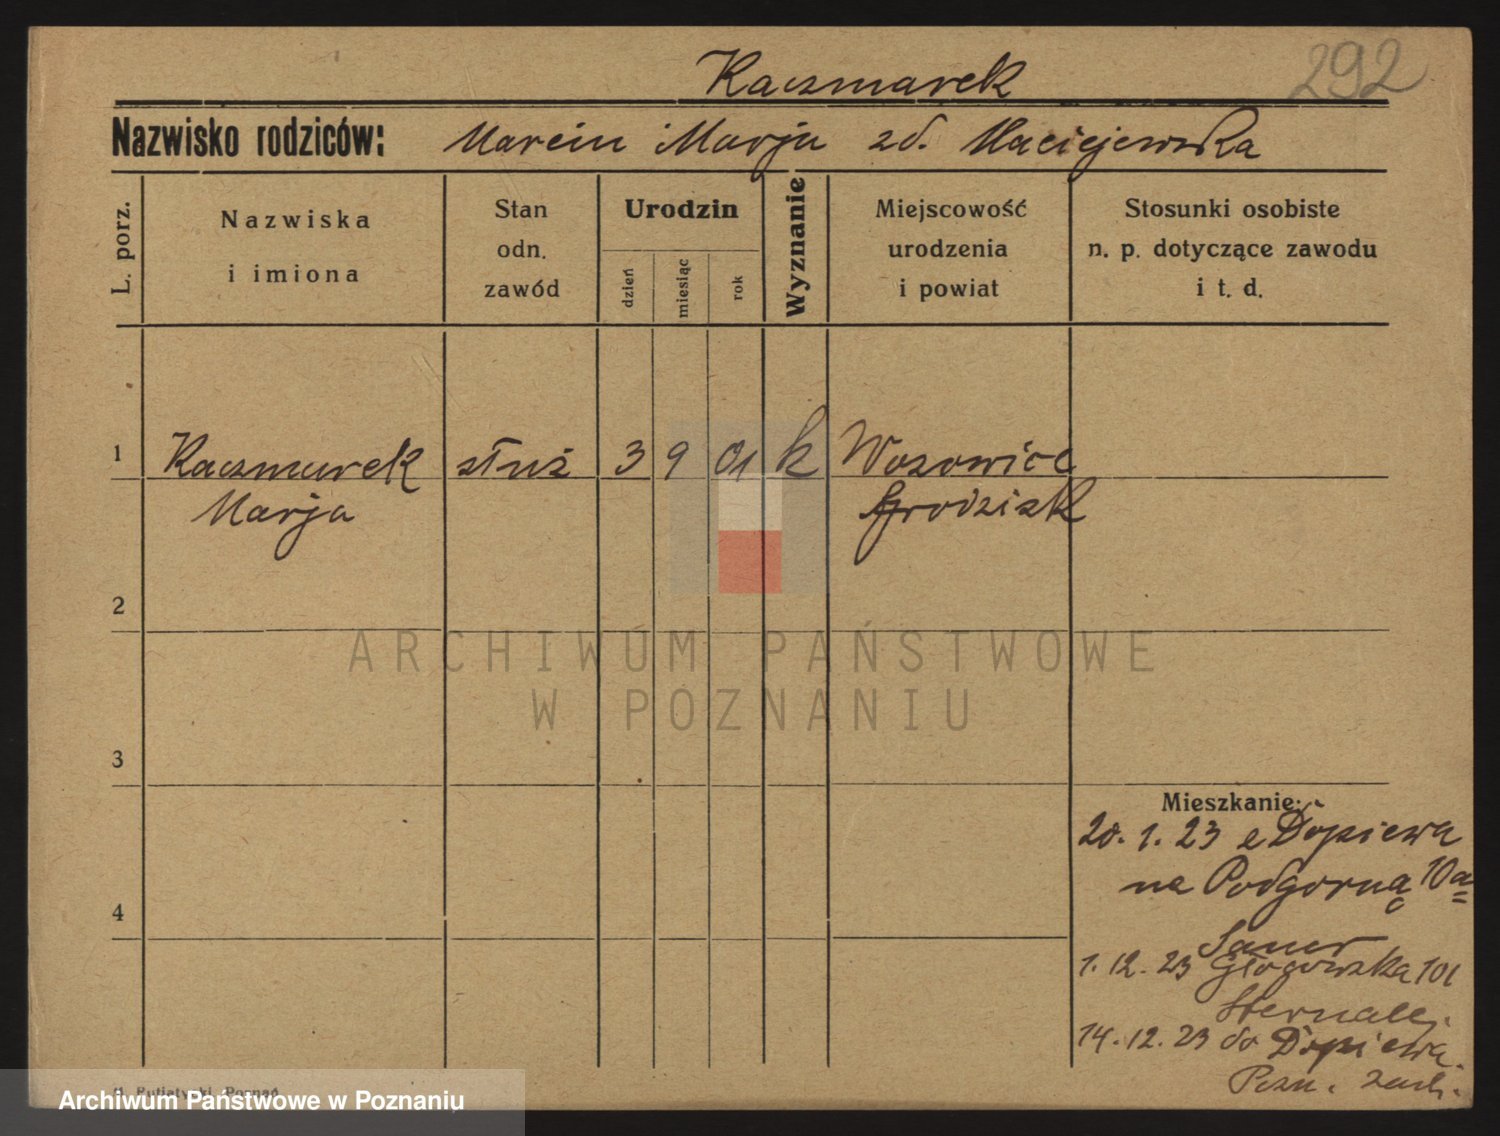 Kaczmarek 292
Nazwisko rodziców: Marcin Marja zd. Maciejewska
L. porz.
Nazwiska
i imiona
Stan
odn.
zawód
Urodzin
dzień
miesiąc
rok
Wyznanie
Miejscowość
urodzenia
i powiat
Stosunki osobiste
n. p. dotyczące zawodu
i t. d.
1 Kaczmarek służ 3 9 01 k Wozowice
Marja Grodzisk
2
ARCHIWUM PAŃSTWOWE
W POZNANIU
3
Mieszkanie:
20. 1. 23 z Dopiewa
na Podgórną 10a
4
Sauer
1. 12. 23 Głogowska 101
14. 12. 23 do Dopiewa.
Pozn. zach.
Archiwum Państwowe w Poznaniu